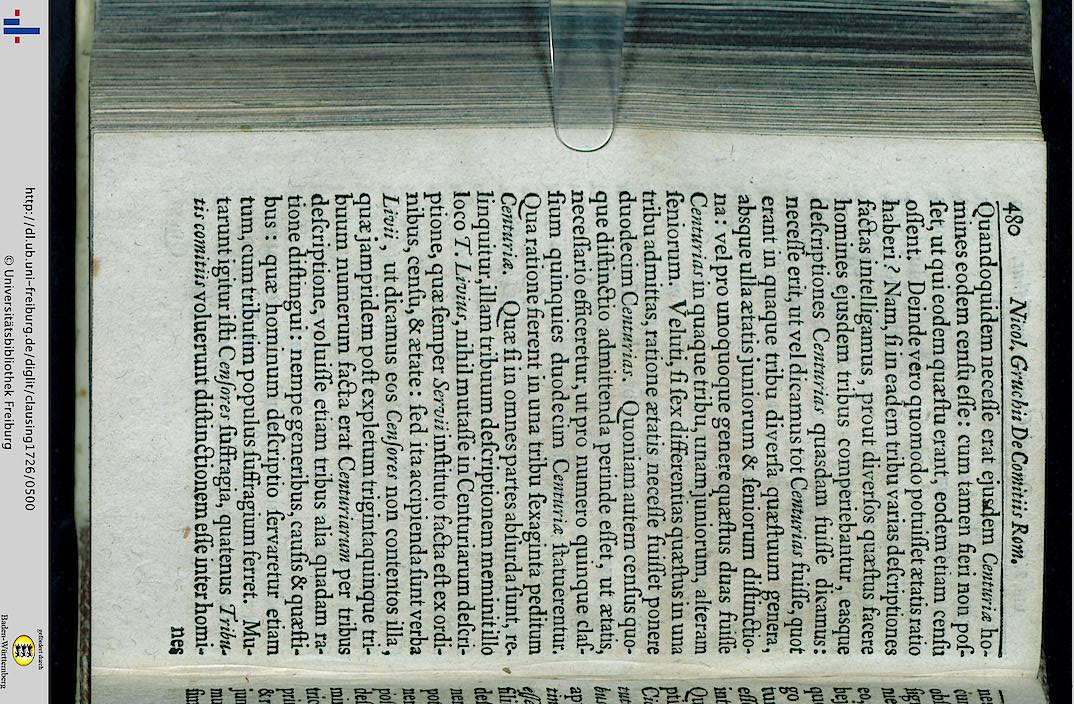 480 Nicol. Gruchii De Comitiis Rom.
Quandoquidem necesse erat ejusdem Centuriæ ho-
mines eodem censu esse: cum tamen fieri non pos-
set, ut qui eodem quæstu erant, eodem etiam censu
essent. Deinde vero quomodo potuisset ætatis ratio
haberi? Nam, si in eadem tribu varias descriptiones
factas intelligamus, prout diversos quæstus facere
homines ejusdem tribus comperiebantur, easque
descriptiones Centurias quasdam fuisse dicamus:
necesse erit, ut vel dicamus tot Centurias fuisse, quot
erant in quaque tribu diversa quæstuum genera,
absque ulla ætatis juniorum & seniorum distinctio-
na: vel pro unoquoque genere quæstus duas fuisse
Centurias in quaque tribu, unam juniorum, alteram
seniorum. Veluti, si sex differentias quæstus in una
tribu admittas, ratione ætatis necesse fuisset ponere
duodecim Centurias. Quoniam autem census quo-
que distinctio admittenda perinde esset, ut ætatis,
necessario efficeretur, ut pro numero quinque clas-
sium quinquies duodecim Centuriæ statuerentur.
Qua ratione fierent in una tribu sexaginta peditum
Centuriæ. Quæ si in omnes partes absurda sunt, re-
linquitur, illam tribuum descriptionem meminit illo
loco T. Livius, nihil mutasse in Centuriarum descri-
ptione, quæ semper Servii instituto facta est ex ordi-
nibus, censu, & ætate: sed ita accipienda sunt verba
Livii, ut dicamus eos Censores non contentos illa,
quæ jampridem post expletum trigintaquinque tri-
buum numerum facta erat Centuriarum per tribus
descriptione, voluisse etiam tribus alia quadam ra-
tione distingui: nempe generibus, causis & quæsti-
bus: quæ hominum descriptio servaretur etiam
tum, cum tributim populus suffragium ferret. Mu-
tarunt igitur isti Censores suffragia, quatenus Tribu-
tis comitiis voluerunt distinctionem esse inter homi-
nes
http://dl.ub.uni-freiburg.de/diglit/clausing1726/0500
© Universitätsbibliothek Freiburg
gefördert durch
Baden-Württemberg